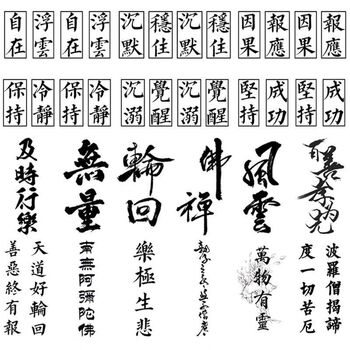 自在
浮雲
自在
浮雲
沉默
穩佳
沉默
穩佳
因果
報應
因果
報應
保持
冷靜
保持
冷靜
沉溺
覺醒
沉溺
覺醒
堅持
成功
堅持
成功
及時行樂
無量
輪回
佛禪
風雲
天道好輪回
善惡終有報
南無阿彌陀佛
樂極生悲
萬物有靈
波羅僧揭諦
度一切苦厄